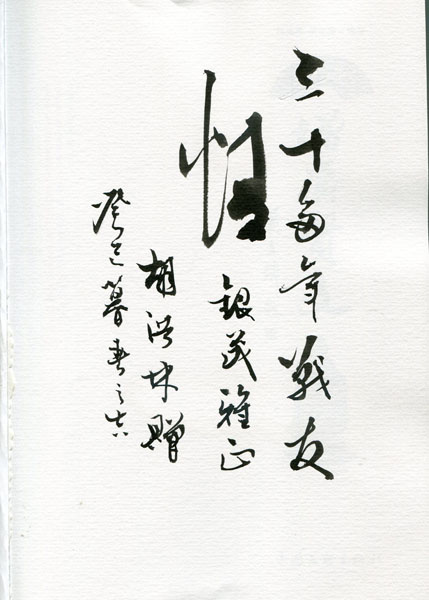 三十多年戰友
情
銀茂雅正
胡洪林贈
癸巳暮春之吉